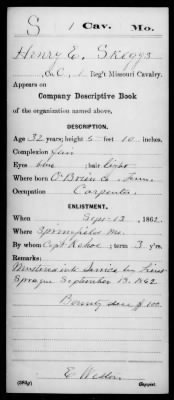 S 1 Cav. Mo.
Henry E. Skeggs
, Co. C, 1 Reg't Missouri Cavalry.
Appears on
Company Descriptive Book
of the organization named above.
DESCRIPTION.
Age 32 years; height 5 feet 10 inches.
Complexion Fair
Eyes blue ; hair light
Where born O'Brien Co., Tenn.
Occupation Carpenter
ENLISTMENT.
When Sept. 13, 1862.
Where Springfield Mo.
By whom Capt. Kehoe ; term 3 y'rs.
Remarks:
Mustered into Service by Lieut
Sprague September 13. 1862
Bounty due $100.
E Weston
Copyist.